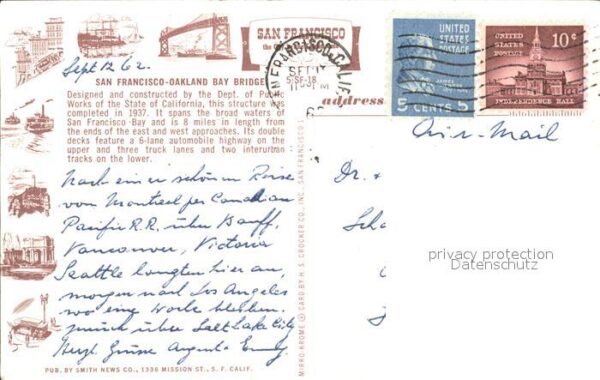 SAN FRANCISCO
Sept 12 62.
SAN FRANCISCO-OAKLAND BAY BRIDGE
Designed and constructed by the Dept. of Public
Works of the State of California, this structure was
completed in 1937. It spans the broad waters of
San Francisco Bay and is 8 miles in length from
the ends of the east and west approaches. Its double
decks feature a 6-lane automobile highway on the
upper and three truck lanes and two interurban
tracks on the lower.
Nach einer schönen Reise
von Montreal per Canadian
Pacific R.R. über Banff,
Vancouver, Victoria
Seattle langten hier an,
morgen nach Los Angeles
wo eine Woche bleiben.
zurück über Salt Lake City
Herzl. Grüsse Augusta
PUB. BY SMITH NEWS CO., 1398 MISSION ST., S. F. CALIF.
MIRRO-KROME © CARD BY H. S. CROCKER CO., INC., SAN FRANCISCO
SAN FRANCISCO, CALIF.
UNITED
STATES
POSTAGE
5 CENTS 5
10¢
UNITED STATES
POSTAGE
INDEPENDENCE HALL
address
Air-Mail
Dr.
privacy protection
Datenschutz